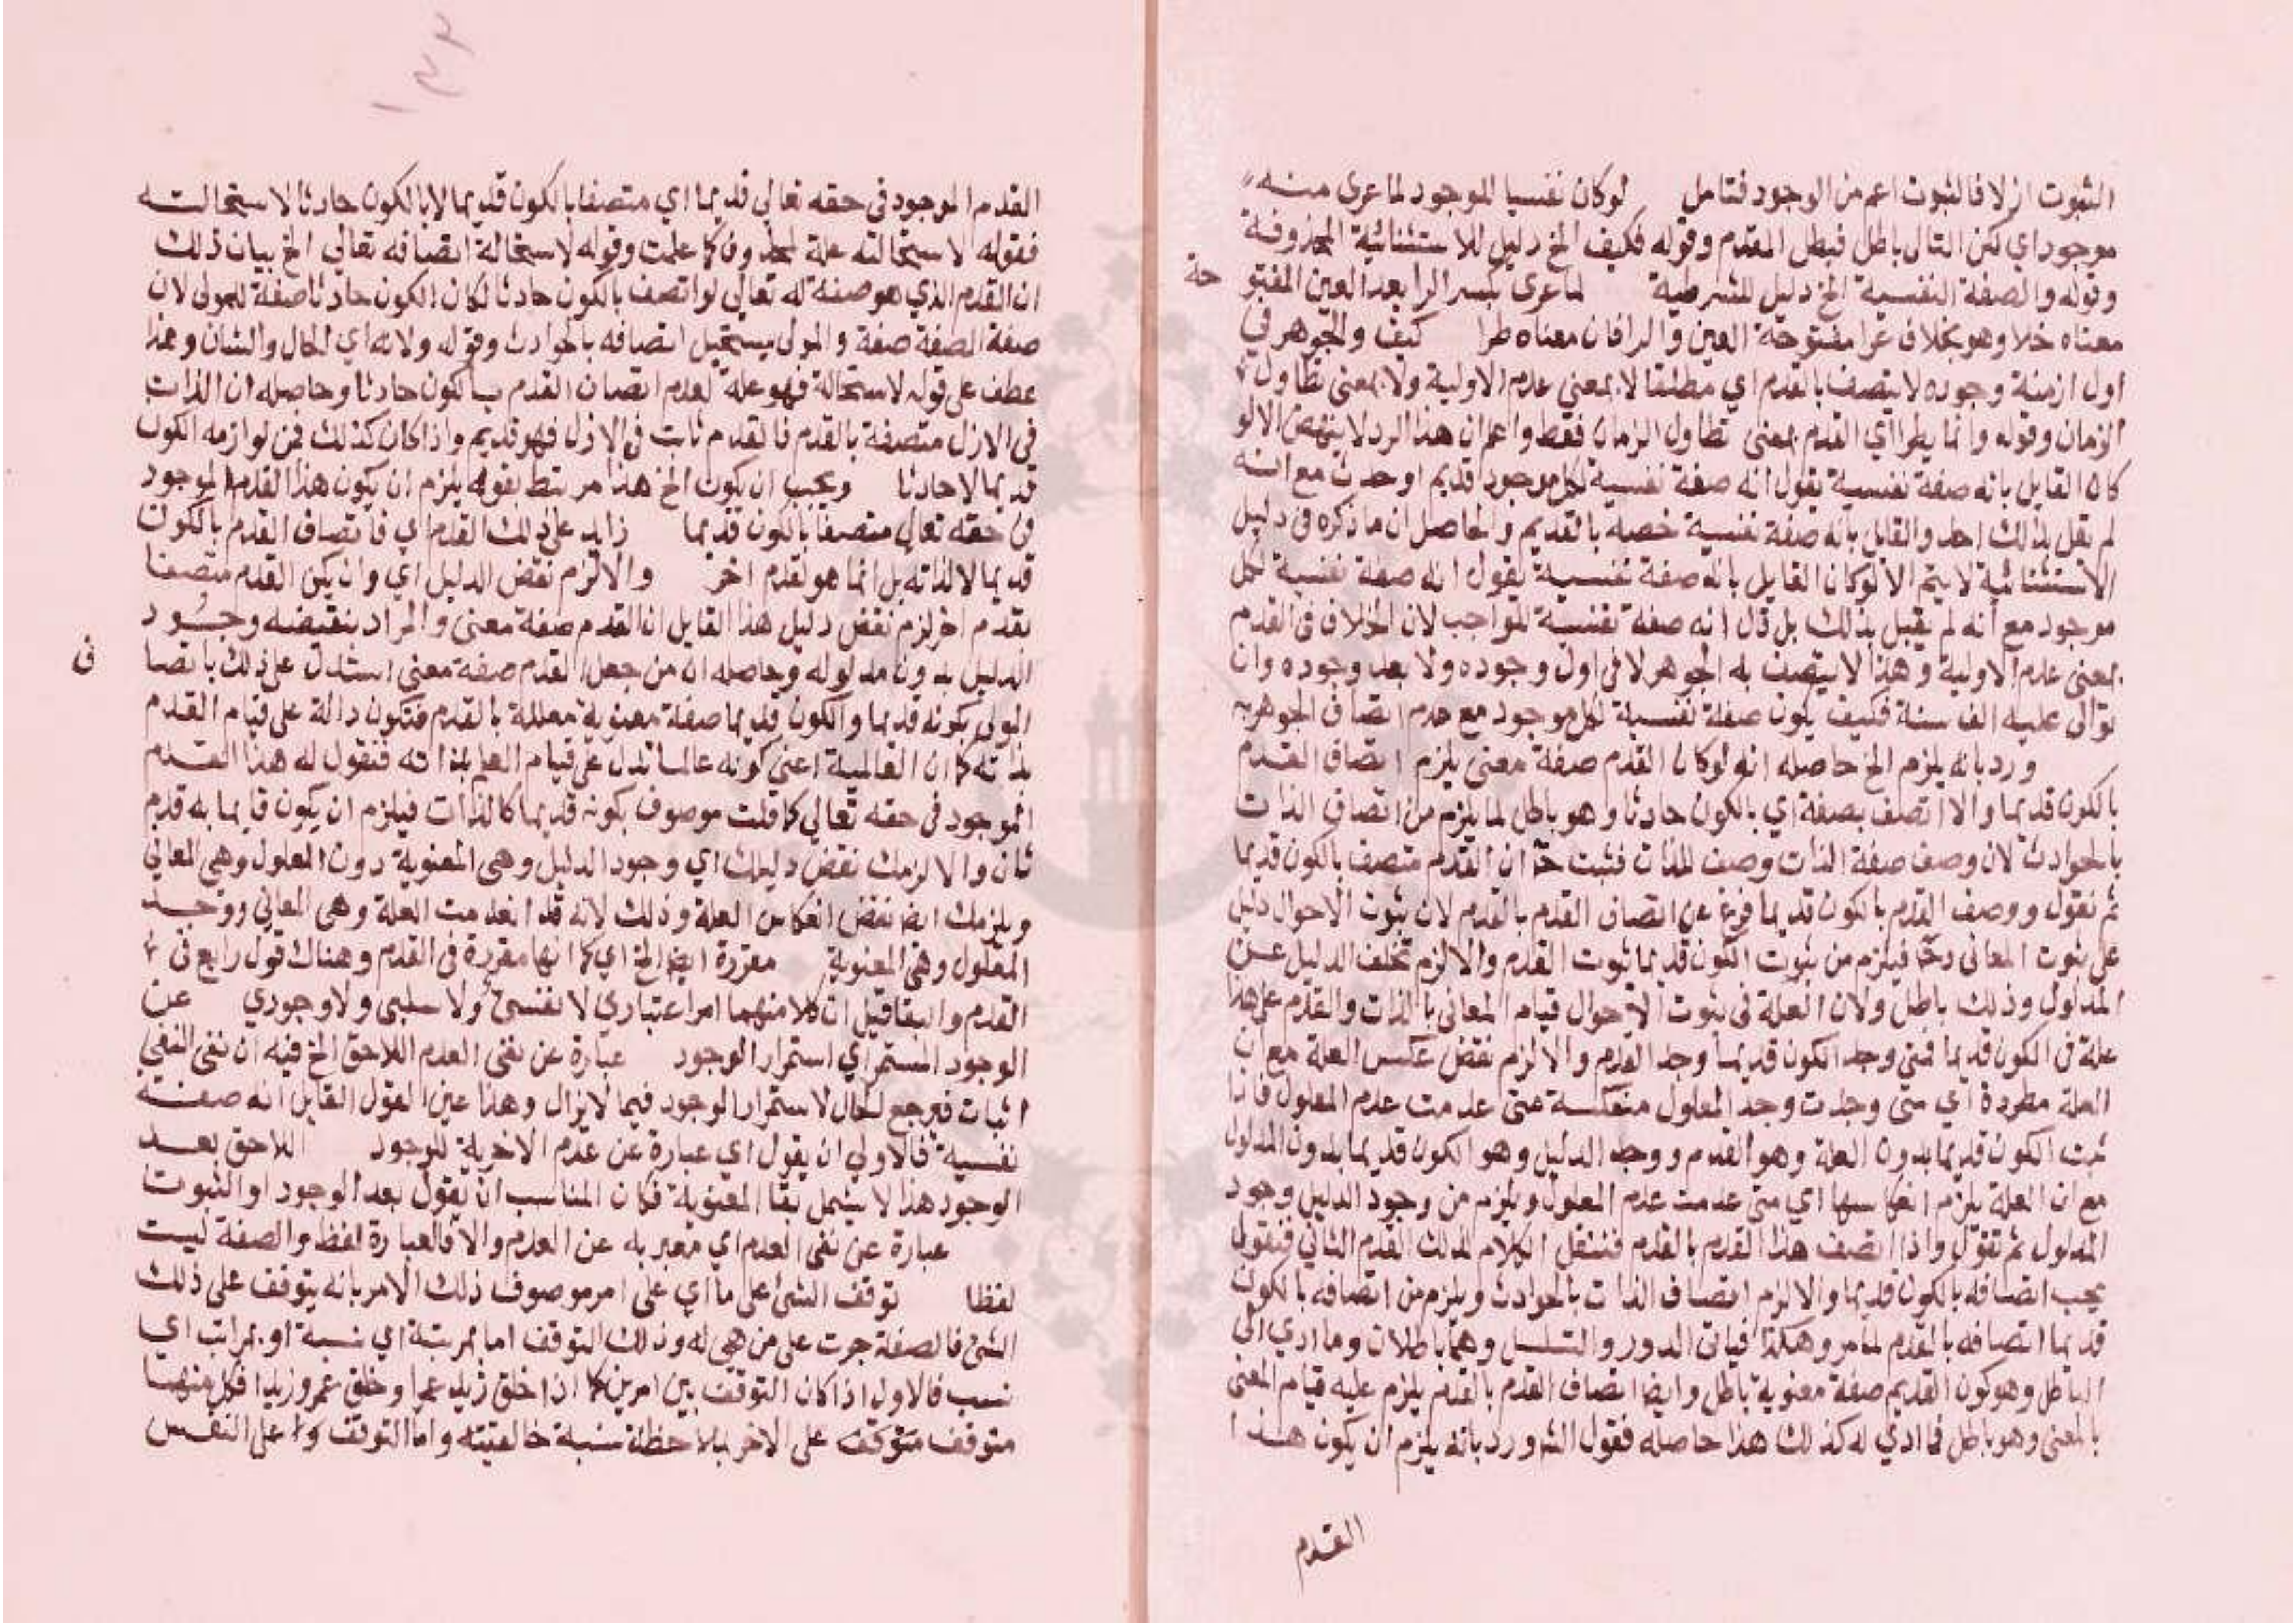 الثبوت ازلا فالثبوت اعم من الوجود فتامل لو كان نفسيا للموجود لما عرى منه
موجود اي لكن التالي باطل فبطل المقدم وقوله فكيف الخ دليل للاستثنائية المحذوفة
وقوله والصفة النفسية الخ دليل للشرطية لما عرى بكسر الرا بعد العين المفتوحة
معناه خلا وهو بخلاف عرا مفتوحة العين والرا فان معناه طرا كيف والجوهر في
اول ازمنة وجوده لا يتصف بالقدم اي مطلقا لا بمعنى عدم الاولية ولا بمعنى تطاول
الزمان وقوله وانما يطرا اي القدم بمعنى تطاول الزمان فقط واعم ان هذا الرد لا ينهض الا لو
كان القايل بانه صفة نفسية يقول انه صفة نفسية لكل موجود قديم او حدث مع انه
لم يقل بذلك احد والقايل بانه صفة نفسية خصه بالقديم والحاصل ان ما ذكره في دليل
الاستثنائية لا يتم الا لو كان القايل بانه صفة نفسية يقول انه صفة نفسية لكل
موجود مع انه لم يقبل بذلك بل قال انه صفة نفسية للواجب لان الخلاف في القدم
بمعنى عدم الاولية وهذا لا يتصف به الجوهر لا في اول وجوده ولا بعد وجوده وان
توالى عليه الف سنة فكيف يكون صفة نفسية لكل موجود مع عدم اتصاف الجوهر به
ورد بانه يلزم الخ حاصله انه لو كان القدم صفة معنى يلزم اتصاف القدم
بالكون قديما والا اتصف بصفة اي بالكون حادثا وهو باطل لما يلزم من اتصاف الذات
بالحوادث لان وصف صفة الذات وصف للذات فثبت ح ان القدم متصف بالكون قديما
ثم نقول ووصف القدم بالكون قديما فرع عن اتصاف القدم بالقدم لان ثبوت الاحوال دليل
على ثبوت المعاني وح فيلزم من ثبوت الكون قديما ثبوت القدم والا لزم تخلف الدليل عن
المدلول وذلك باطل ولان العلة في ثبوت الاحوال قيام المعاني بالذات والقدم على هذا
علة في الكون قديما فمتى وجد الكون قديما وجد القدم والا لزم نقض عكس العلة مع ان
العلة مطردة اي متى وجدت وجد المعلول منعكسة متى عدمت عدم المعلول فاذا
ثبت الكون قديما بدون العلة وهو القدم ووجد الدليل وهو الكون قديما بدون المدلول
مع ان العلة يلزم انعكاسها اي متى عدمت عدم المعلول ويلزم من وجود الدليل وجود
المدلول ثم نقول واذا اتصف هذا القدم بالقدم فننقل الكلام لذلك القدم الثاني فنقول
يجب اتصافه بالكون قديما والا لزم اتصاف الذات بالحوادث ويلزم من اتصافه بالكون
قديما اتصافه بالقدم لما مر وهكذا فياتي الدور والتسلسل وهما باطلان وما ادي الى
الباطل وهو كون القديم صفة معنوية باطل وايضا اتصاف القدم بالقدم يلزم عليه قيام المعنى
بالمعنى وهو باطل فما ادي له كذلك هذا حاصله فقول الش ورد بانه يلزم ان يكون هذا
القدم
١٣٢
القدم الموجود في حقه تعالى قديما اي متصفا بالكون قديما لا بالكون حادثا لاستحالته
فقوله لاستحالته علة لمحذوف كما علمت وقوله لاستحالة اتصافه تعالى الخ بيان ذلك
ان القدم الذي هو صفة له تعالى لو اتصف بالكون حادثا لكان الكون حادثا صفة للمولى لان
صفة الصفة صفة والمولى يستحيل اتصافه بالحوادث وقوله ولانه اي الحال والشان وهذا
عطف على قوله لاستحالة فهو علة لعدم اتصاف القدم بالكون حادثا وحاصله ان الذات
في الازل متصفة بالقدم فالقدم ثابت في الازل فهو قديم واذا كان كذلك فمن لوازمه الكون
قديما لا حادثا ويجب ان يكون الخ هذا مرتبط بقوله يلزم ان يكون هذا القدم الموجود
في حقه تعالى متصفا بالكون قديما زايد على ذلك القدم اي فاتصاف القدم بالكون
قديما لا لذاته بل انما هو لقدم اخر والا لزم نقض الدليل اي وان يكن القدم متصفا
بقدم اخر لزم نقض دليل هذا القايل ان القدم صفة معنى والمراد بنقيضه وجود
الدليل بدون مدلوله وحاصله ان من جعل القدم صفة معنى استدل على ذلك باتصاف
المولى بكونه قديما والكون قديما صفة معنوية معللة بالقدم فتكون دالة على قيام القدم
بذاته كما ان العالمية اعني كونه عالما تدل على قيام العلم بذاته فنقول له هذا القدم
الموجود في حقه تعالى كما قلت موصوف بكونه قديما كالذات فيلزم ان يكون قايما به قدم
ثان والا لزمك نقض دليلك اي وجود الدليل وهي المعنوية دون المعلول وهي المعاني
ويلزمك ايضا نقض انعكاس العلة وذلك لانه قد انعدمت العلة وهي المعاني ووجد
المعلول وهي المعنوية مقررة ايضا الخ اي كما انها مقررة في القدم وهناك قول رابع في
القدم والبقا قيل ان كلا منهما امر اعتباري لا نفسي ولا سلبي ولا وجودي عن
الوجود المستمر اي استمرار الوجود عبارة عن نفى العدم اللاحق الخ فيه ان نفى النفي
اثبات فيرجع لحال لاستمرار الوجود فيما لا يزال وهذا عين القول القايل انه صفة
نفسية فالاولى ان يقول اي عبارة عن عدم الاخرية للوجود اللاحق بعد
الوجود هذا لا يشمل بقا المعنوية فكان المناسب ان يقول بعد الوجود او الثبوت
عبارة عن نفى العدم اي معبر به عن العدم والا فالعبارة لفظ والصفة ليست
لفظا توقف الشئ على ما اي على امر موصوف ذلك الامر بانه يتوقف على ذلك
الشئ فالصفة جرت على من هي له وذلك التوقف اما بمرتبة اي نسبة او بمراتب اي
نسب فالاول اذا كان التوقف بين امرين كما اذا خلق زيد عمرا وخلق عمرو زيدا فكل منهما
متوقف متوقفه على الاخر بملاحظة نسبة خالقيته واما التوقف على النفس